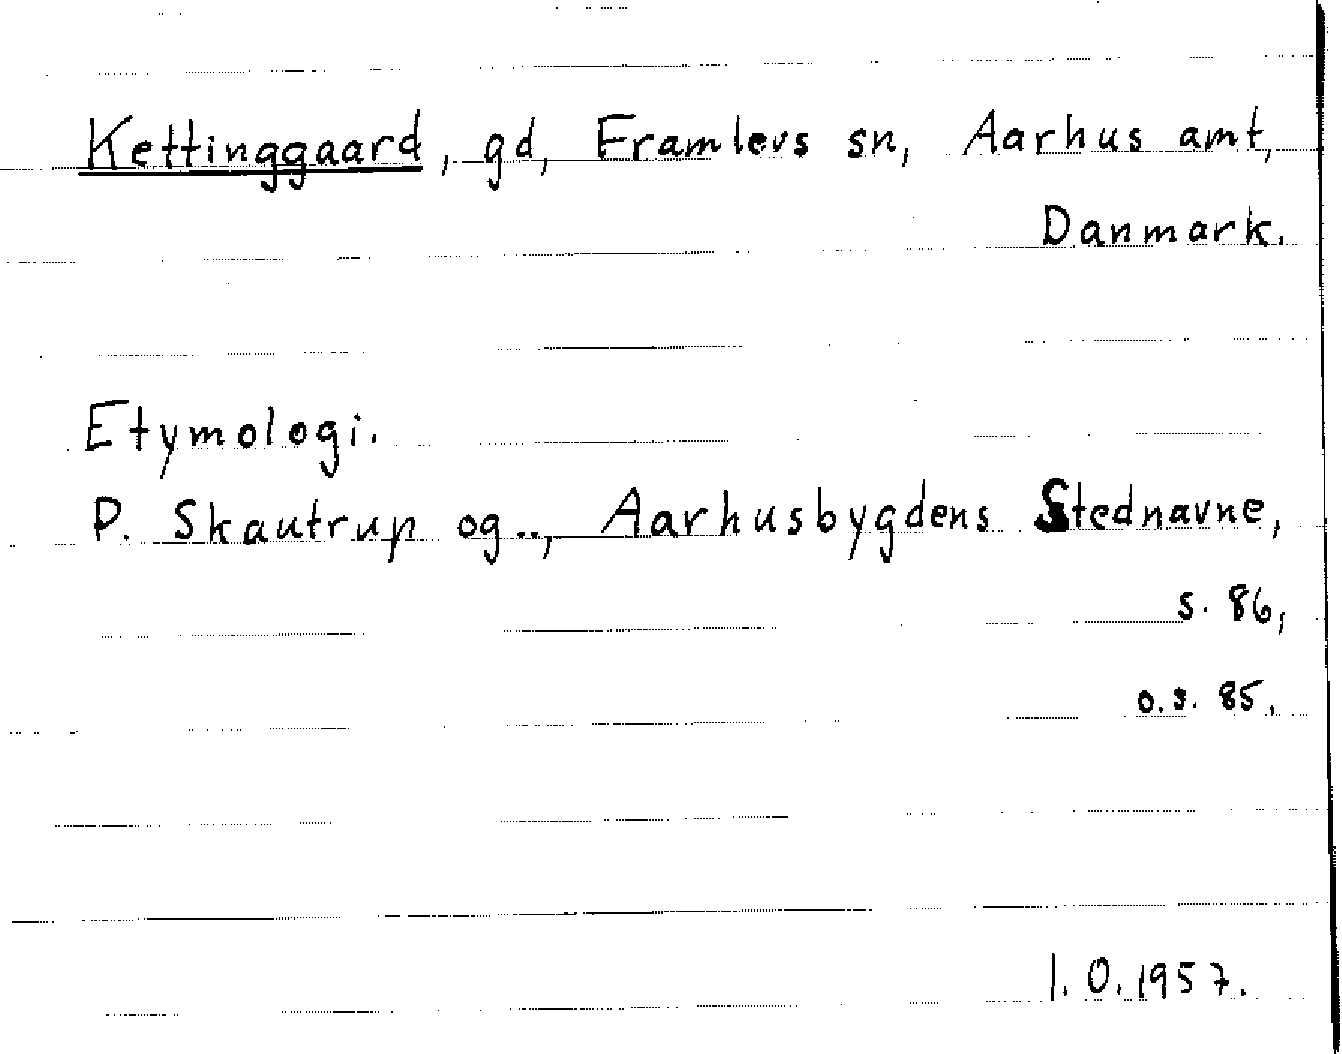 Kettinggaard, gd, Framlevs sn, Aarhus amt,
Danmark.
Etymologi.
P. Skautrup og.., Aarhusbygdens Stednavne,
s. 86,
o.s. 85.
I.O.1957.